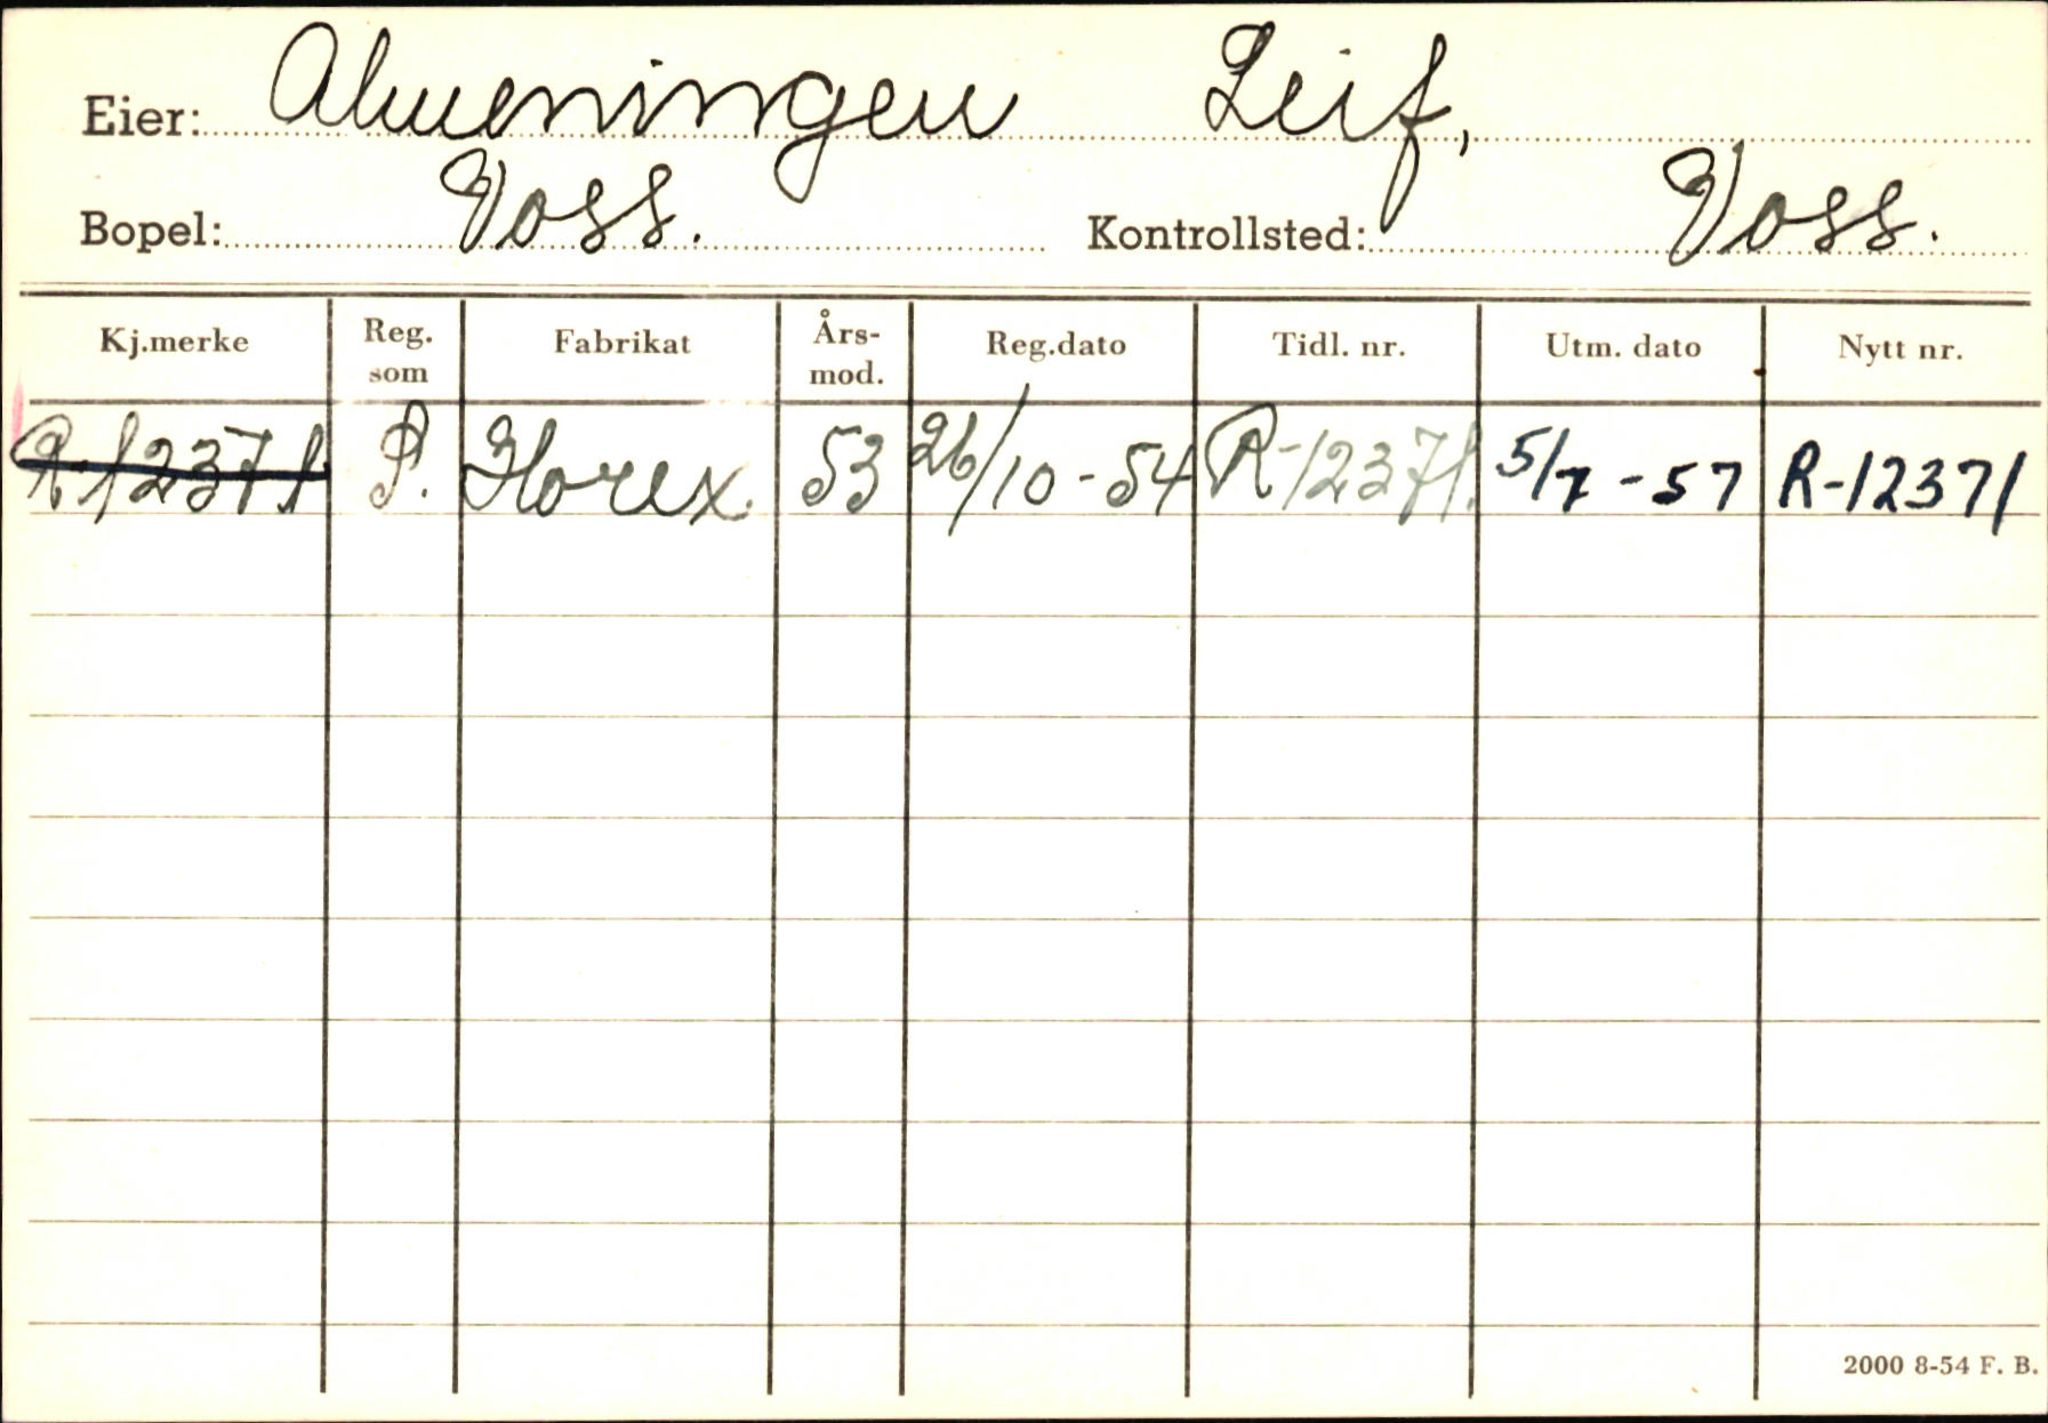 Eier: Almeningen Leif,
Bopel: Voss. Kontrollsted: Voss.
Kj.merke Reg. som Fabrikat Års-mod. Reg.dato Tidl. nr. Utm. dato Nytt nr.
R-12371 P. Horex. 53 26/10-54 R-12371. 5/7-57 R-12371
2000 8-54 F. B.